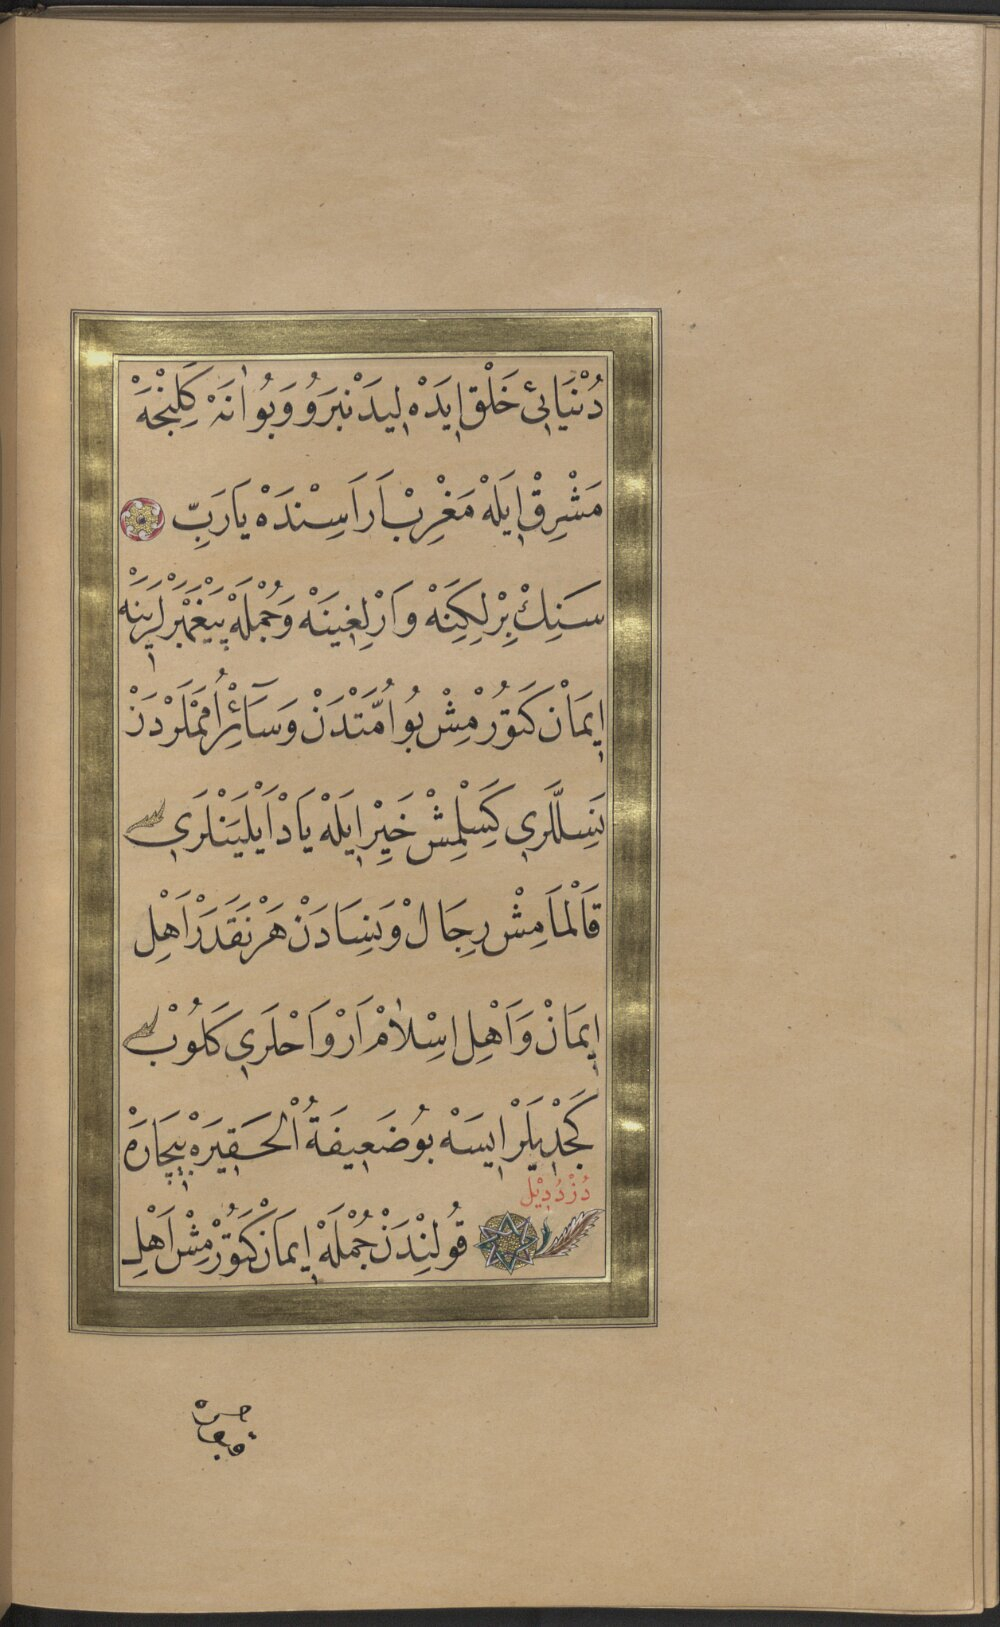 دُنْيَايِیْ خَلْق اِيدَهْ لِيدَنْبَرُو وَبُو اٰنَهْ كَلِنْجَهْ
مَشْرِقْ اِيلَهْ مَغْرِبْ اَرَاسِنْدَهْ يَارَبِّ
سَنِكْ بِرْلِكِنَهْ وَارْلِغِينَهْ وَجُمْلَهْ پَيْغَمْبَرْلَرِينَهْ
اِيمَانْ كَتُورْمِشْ بُو اُمَّتْدَنْ وَسَآئِرْ اُمَمْلَرْدَنْ
نَسِلْلَرِي كَسِلْمِشْ خَيِرْ اِيلَهْ يَادْ اَيْلَيَنْلَرِي
قَالْمَامِشْ رِجَالْ وَنِسَادَنْ هَرْ نَقَدَرْ اَهْلِ
اِيمَانْ وَاَهْلِ اِسْلاٰمْ اَرْوَاحْلَرِي كَلُوبْ
كَجْدِيلَرْ اِيسَهْ بُو ضَعِيفَةُ الْحَقِيرَهْ بِيچَارَهْ
دُرْدُدِيْل
قُولِنْدَنْ جُمْلَهْ اِيمَانْ كَتُورْمِشْ اَهْلِ